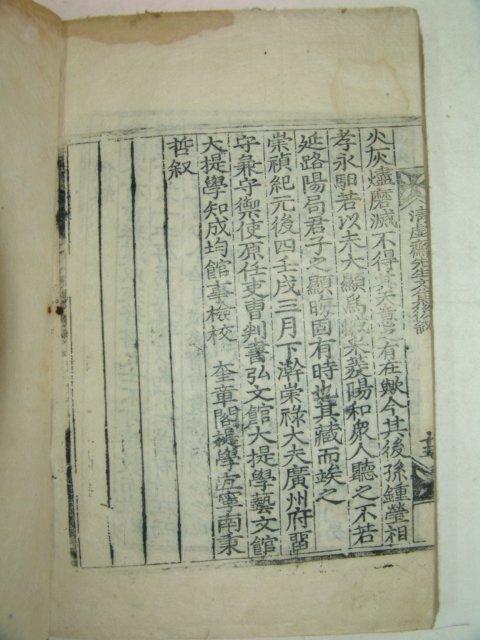 火灰燼磨滅不得其天意之有在歟今其後孫鍾瑩相
孝永駬若以未大顯爲恨
陽和衆人聽之不若
延路陽局君子之顯晦固有時也其藏而竢之
崇禎紀元後四壬戌三月下澣崇祿大夫廣州府畱
守兼守禦使原任吏曹判書弘文館大提學藝文館
大提學知成均館事檢校 奎章閣提學宜寧南秉
哲叙
先生文集後叙